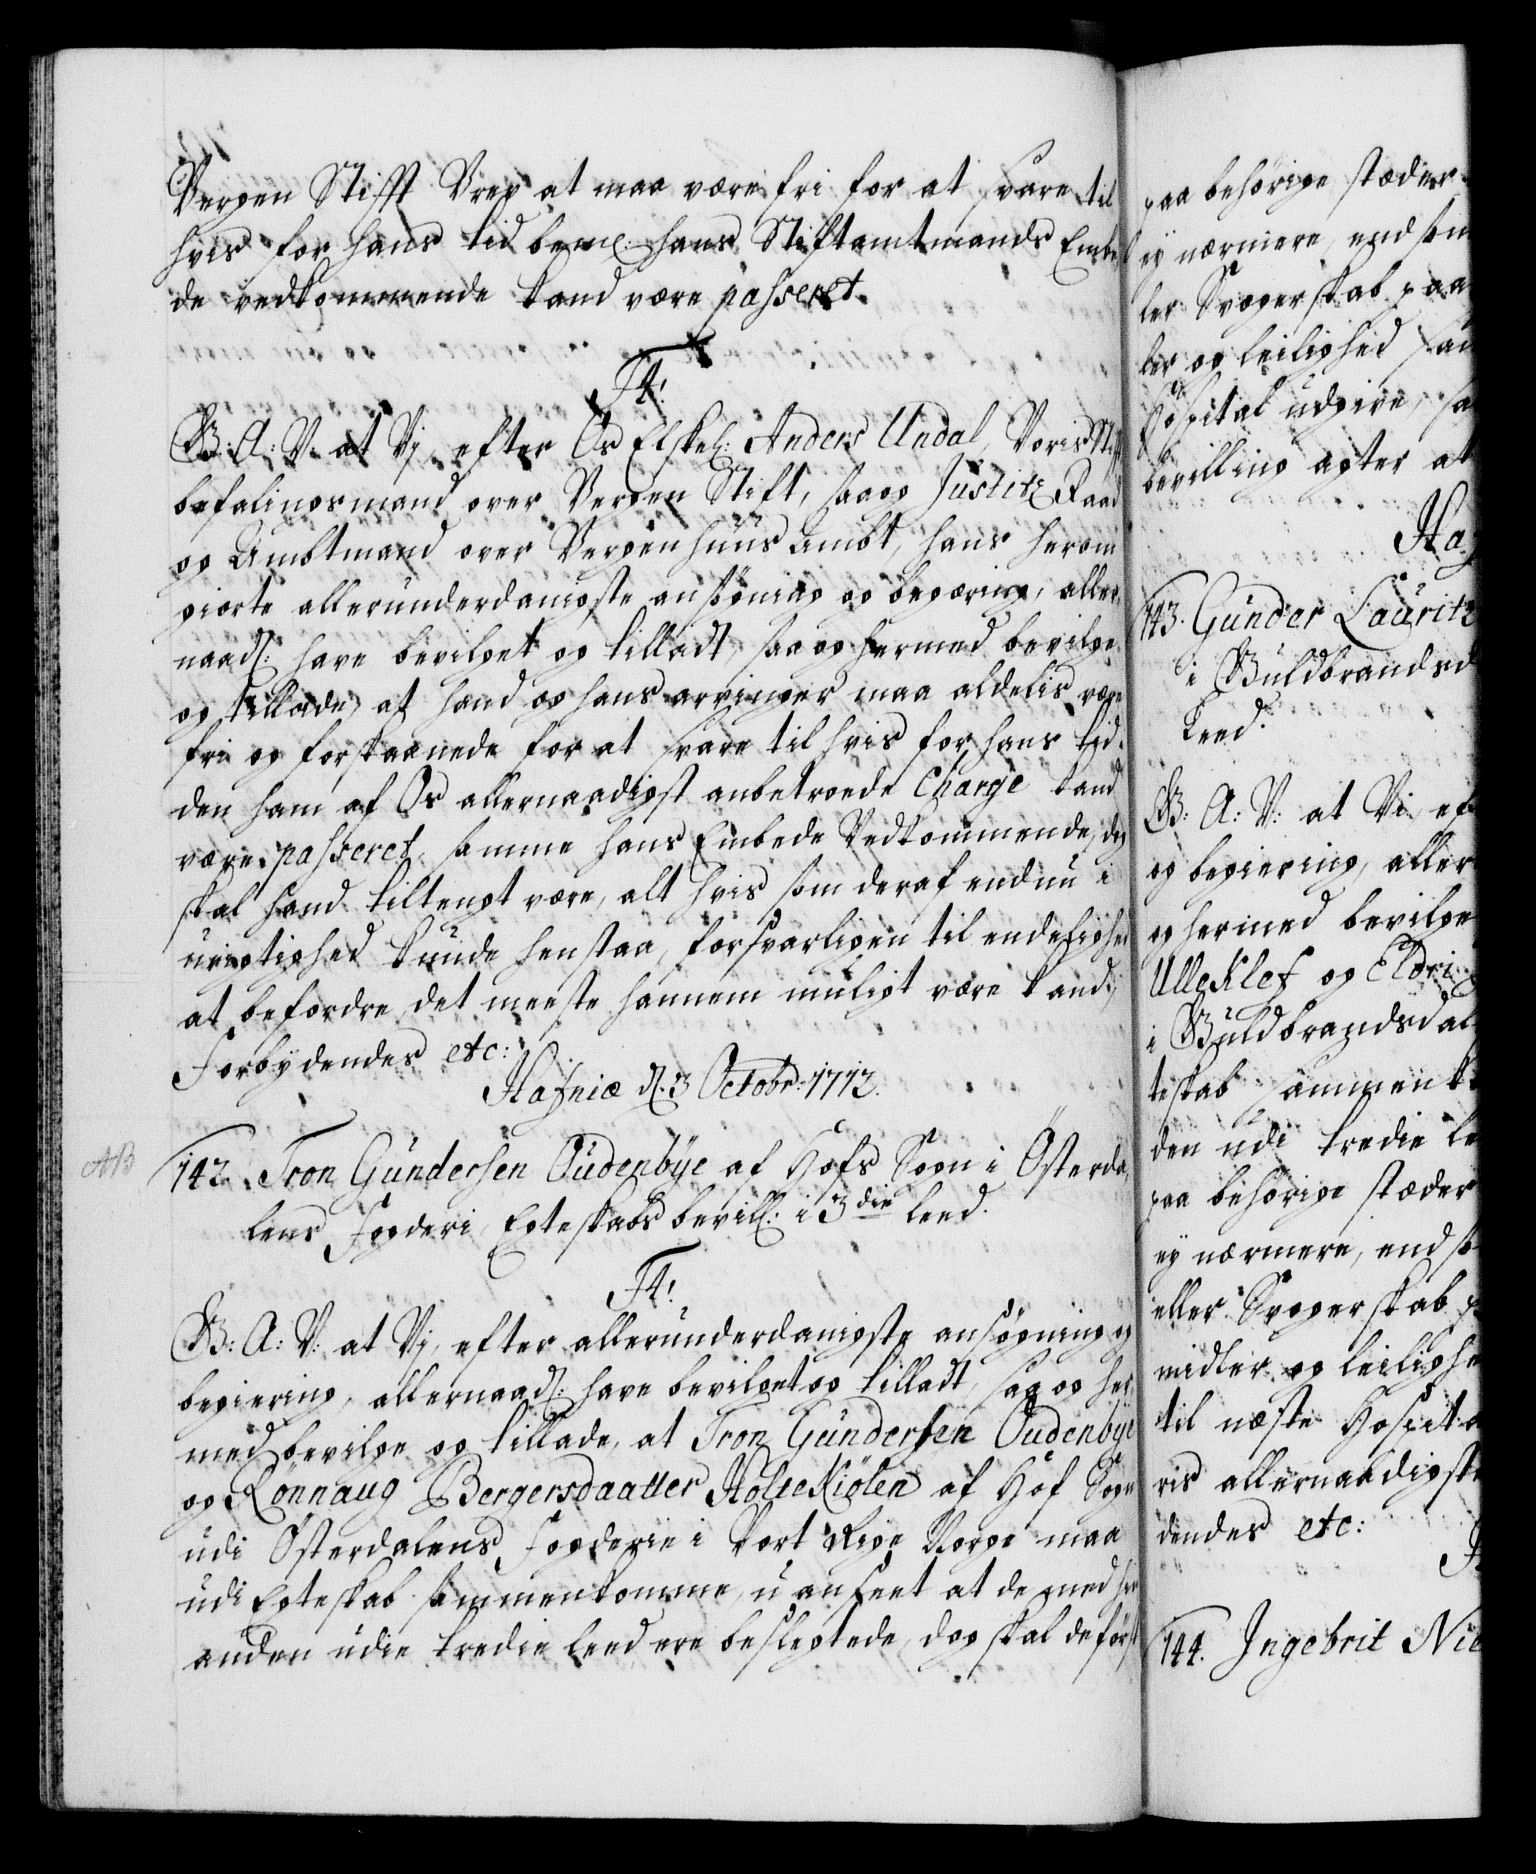 Bergen Stifft Brev at maa være fri for at svare til
hvis for hans tid beml: hans Stiftamtmands Embe
de vedkommende kand være passeret.
F4!
G: A: V: at Vj efter Os Elskel: Anders Undal, Voris Stift
befalingsmand over Bergen Stift, saa og Justitz Raad
og Ambtmand over Bergenhuus ambt, hans herom
giorte allerunderdanigste ansøgning og begæring, aller
naadl: have bevilget og tilladt, saa og hermed bevilge
og tillade, at hand og hans arvinger maa aldelis være
fri og forskaanede for at svare til hvis for hans tid
den ham af Os allernaadigst anbetroede Charge kand
være passeret, samme hans Embede Vedkommende, dog
skal hand tiltengt være, alt hvis som deraf endnu i
urigtighed kunde henstaa, forsvarligen til endelighed
at befordre det meeste hannem muligt være kand.
Forbydendes etc:
Hafniæ d. 3 Octobr: 1712.
AB
142. Tron Gundersen Oudenbÿe af Hofs Sogn i Østerda
lens Fogderi, Egteskabs bevill: i 3die leed.
F4!
G: A: V: at Vj, efter allerunderdanigste ansøgning og
begiering, allernaadl: have bevilget og tilladt, saa og her
med bevilge og tillade, at Tron Gundersen Oudenbÿe
og Rønnaug Bergersdaatter Holtekiølen af Hof Sogn
udi Østerdalens Fogderie i Vort Rige Norge maa
udi Egteskab sammenkomme, uanseet at de med hin
anden udie tredie leed ere beslegtede, dog skal de først
paa behørige stæder
ey nærmere, end som
ler Svogerskab paa
ler og leilighed
Hospital udgive, sa
bevilling agter at
Ha
143. Gunder Lauritz
i Guldbrandsd
Leed.
G: A: V: at Vi, ef
og begiering, aller
og hermed bevilge
Ulleklef og Eldri
i Guldbrandsdal
teskab sammenk
den udi tredie le
paa behørige stæder
ey nærmere, end so
eller Svogerskab p
midler og leilighe
til næste Hospita
ris allernaadigste
dendes etc:
H
144. Ingebrit Nie